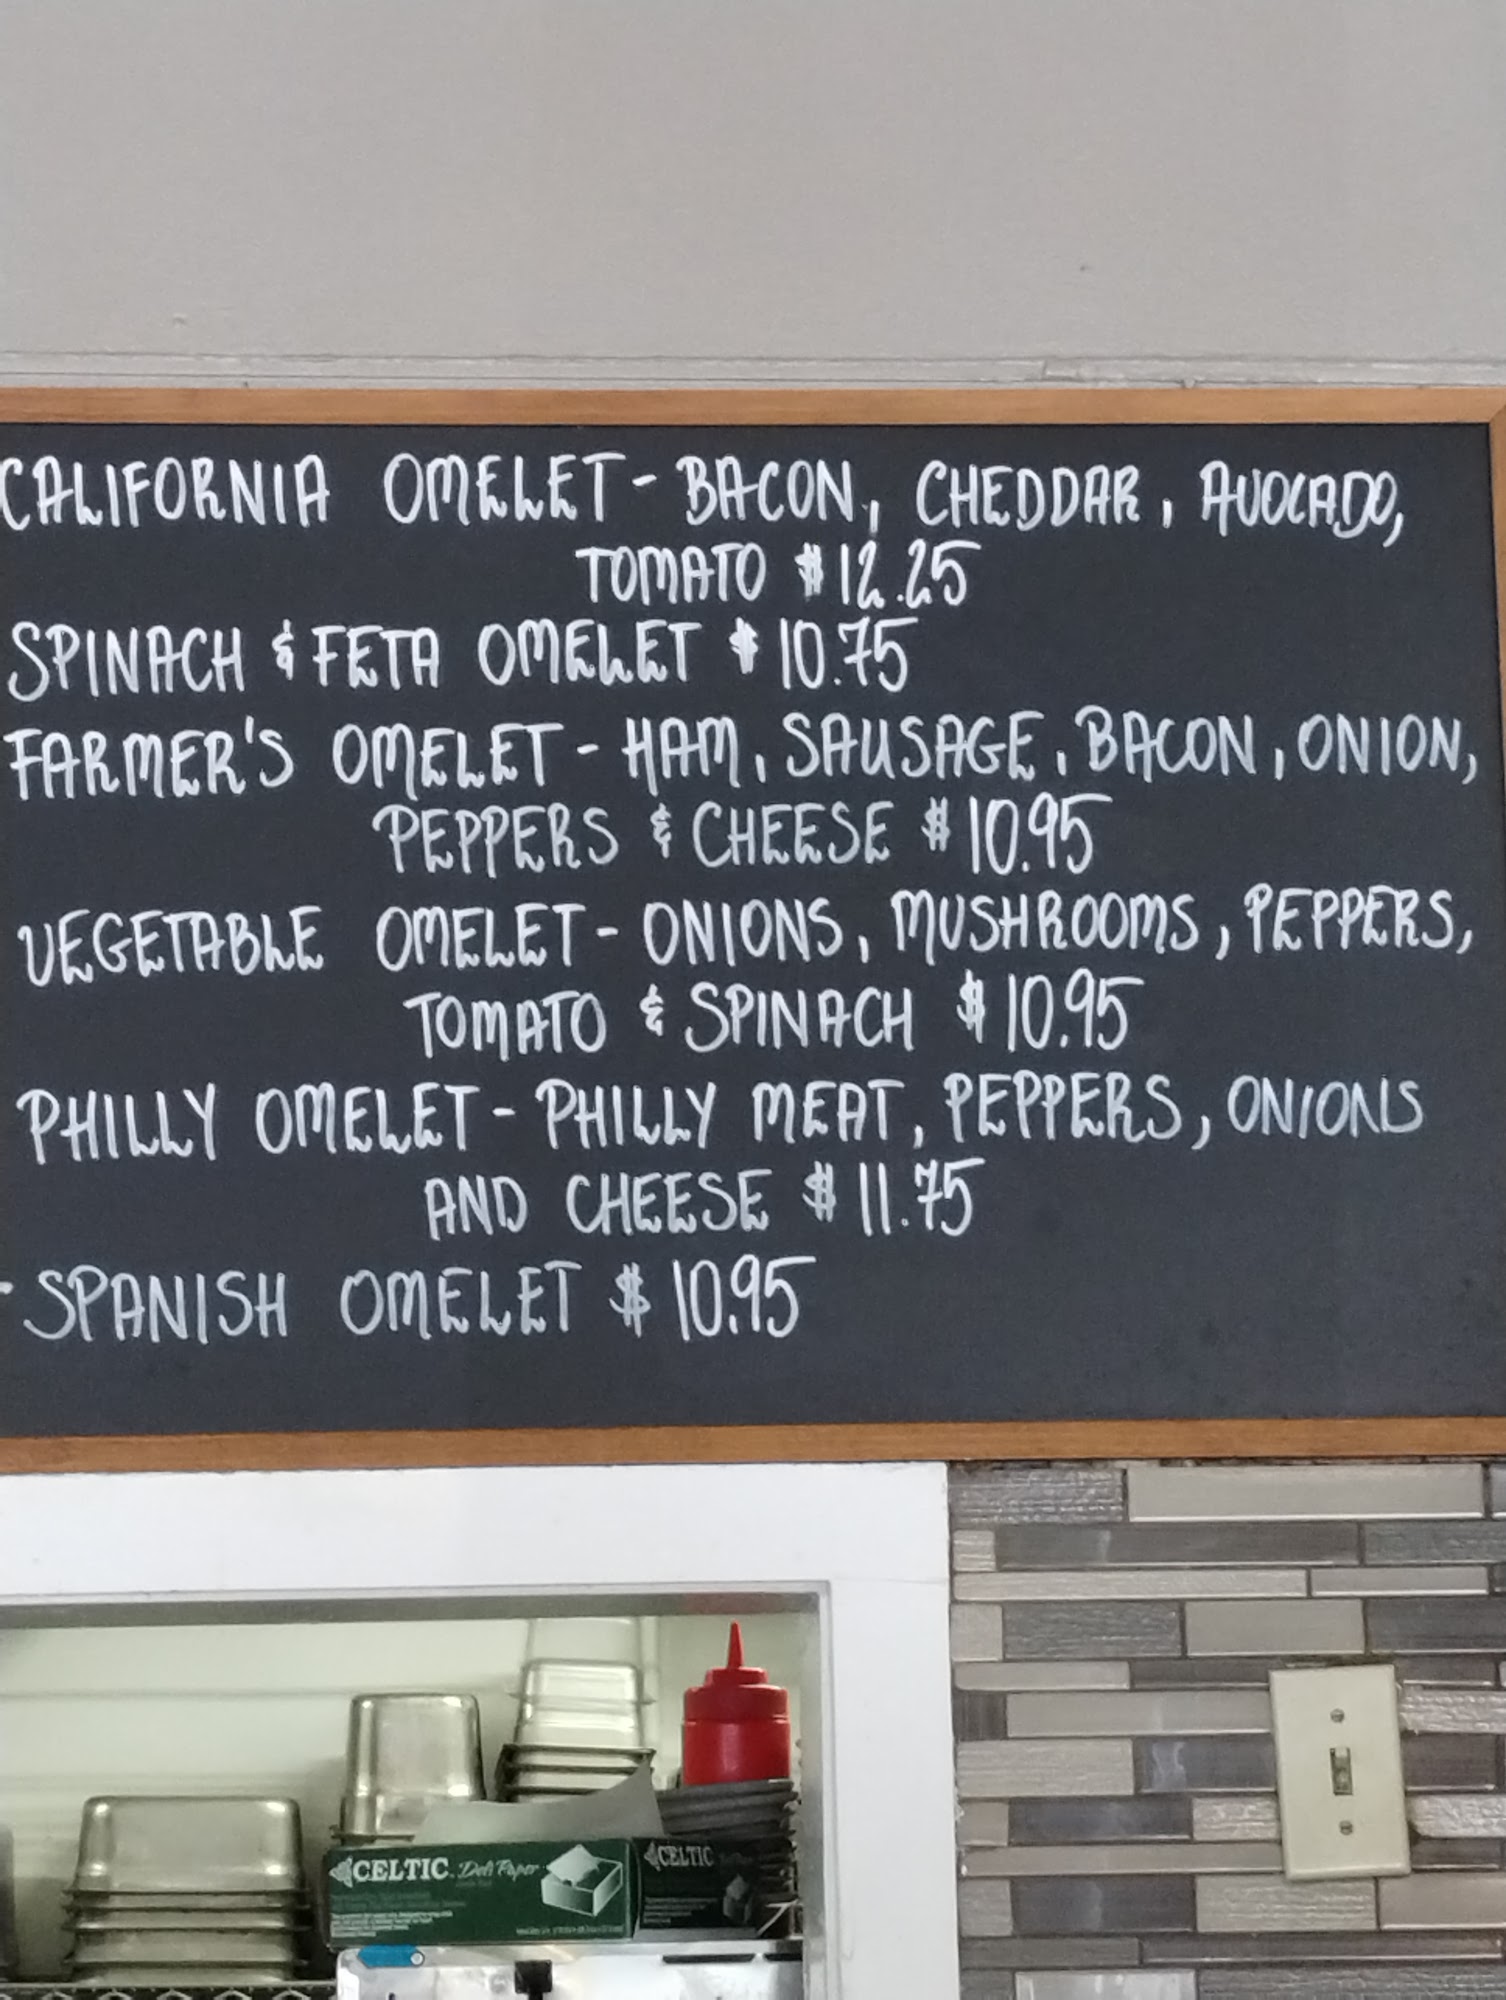 CALIFORNIA OMELET - BACON, CHEDDAR, AVOCADO,
TOMATO $12.25
SPINACH & FETA OMELET $10.75
FARMER'S OMELET - HAM, SAUSAGE, BACON, ONION,
PEPPERS & CHEESE $10.95
VEGETABLE OMELET - ONIONS, MUSHROOMS, PEPPERS,
TOMATO & SPINACH $10.95
PHILLY OMELET - PHILLY MEAT, PEPPERS, ONIONS
AND CHEESE $11.75
SPANISH OMELET $10.95
CELTIC Deli Paper
CELTIC